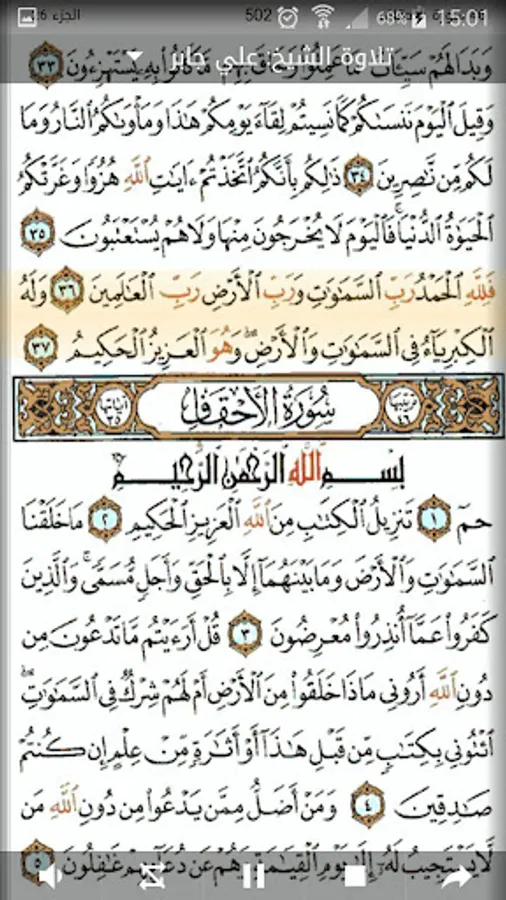 الجزء 502 68% 15:01
تلاوة الشيخ: علي جابر
وَبَدَا لَهُمْ سَيِّـَٔاتُ مَا عَمِلُوا۟ وَحَاقَ بِهِم مَّا كَانُوا۟ بِهِۦ يَسْتَهْزِءُونَ ٣٣
وَقِيلَ ٱلْيَوْمَ نَنسَىٰكُمْ كَمَا نَسِيتُمْ لِقَآءَ يَوْمِكُمْ هَٰذَا وَمَأْوَىٰكُمُ ٱلنَّارُ وَمَا
لَكُم مِّن نَّٰصِرِينَ ٣٤ ذَٰلِكُم بِأَنَّكُمُ ٱتَّخَذْتُمْ ءَايَٰتِ ٱللَّهِ هُزُوًا وَغَرَّتْكُمُ
ٱلْحَيَوٰةُ ٱلدُّنْيَا ۚ فَٱلْيَوْمَ لَا يُخْرَجُونَ مِنْهَا وَلَا هُمْ يُسْتَعْتَبُونَ ٣٥
فَلِلَّهِ ٱلْحَمْدُ رَبِّ ٱلسَّمَٰوَٰتِ وَرَبِّ ٱلْأَرْضِ رَبِّ ٱلْعَٰلَمِينَ ٣٦ وَلَهُ
ٱلْكِبْرِيَآءُ فِى ٱلسَّمَٰوَٰتِ وَٱلْأَرْضِ ۖ وَهُوَ ٱلْعَزِيزُ ٱلْحَكِيمُ ٣٧
ترتيبها ٤٦ سُورَةُ الأَحْقَافِ آياتها ٣٥
بِسْمِ ٱللَّهِ ٱلرَّحْمَٰنِ ٱلرَّحِيمِ
حمٓ ١ تَنزِيلُ ٱلْكِتَٰبِ مِنَ ٱللَّهِ ٱلْعَزِيزِ ٱلْحَكِيمِ ٢ مَا خَلَقْنَا
ٱلسَّمَٰوَٰتِ وَٱلْأَرْضَ وَمَا بَيْنَهُمَآ إِلَّا بِٱلْحَقِّ وَأَجَلٍ مُّسَمًّى ۚ وَٱلَّذِينَ
كَفَرُوا۟ عَمَّآ أُنذِرُوا۟ مُعْرِضُونَ ٣ قُلْ أَرَءَيْتُم مَّا تَدْعُونَ مِن
دُونِ ٱللَّهِ أَرُونِى مَاذَا خَلَقُوا۟ مِنَ ٱلْأَرْضِ أَمْ لَهُمْ شِرْكٌ فِى ٱلسَّمَٰوَٰتِ ۖ
ٱئْتُونِى بِكِتَٰبٍ مِّن قَبْلِ هَٰذَآ أَوْ أَثَٰرَةٍ مِّنْ عِلْمٍ إِن كُنتُمْ
صَٰدِقِينَ ٤ وَمَنْ أَضَلُّ مِمَّن يَدْعُوا۟ مِن دُونِ ٱللَّهِ مَن
لَّا يَسْتَجِيبُ لَهُۥٓ إِلَىٰ يَوْمِ ٱلْقِيَٰمَةِ وَهُمْ عَن دُعَآئِهِمْ غَٰفِلُونَ ٥